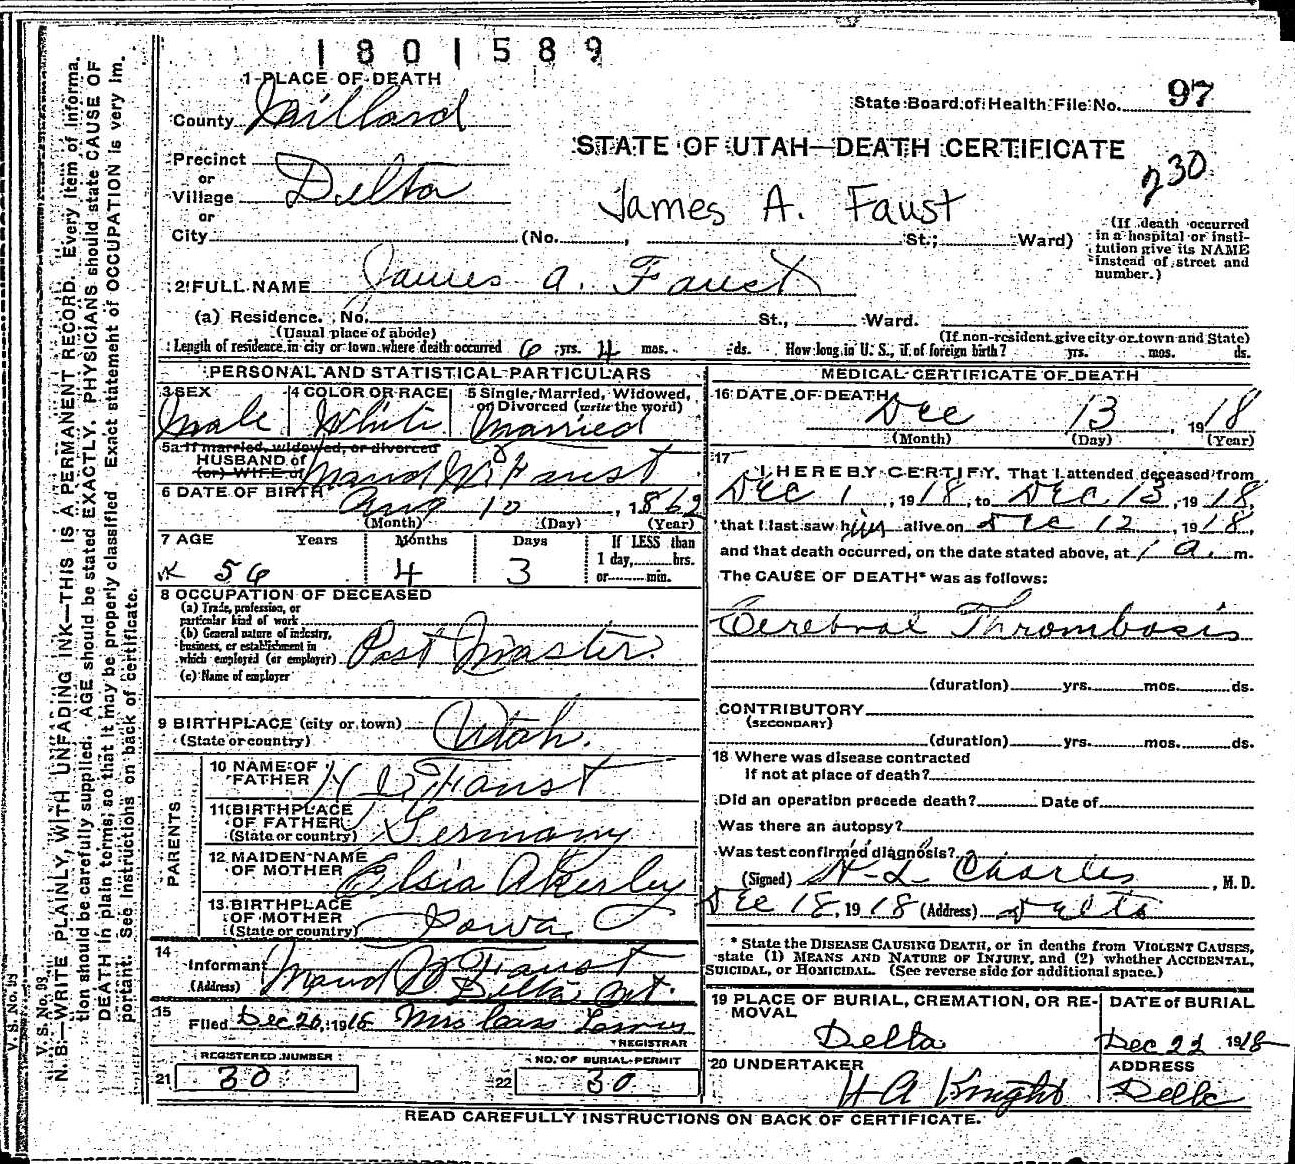 1801589
1 PLACE OF DEATH
State Board of Health File No. 97
County Millard
STATE OF UTAH—DEATH CERTIFICATE
230
Precinct
or
Village Delta
or
James A. Faust
City (No. , St.; Ward)
(If death occurred
in a hospital or insti-
tution give its NAME
instead of street and
number.)
2 FULL NAME James A. Faust
(a) Residence. No. St., Ward.
(Usual place of abode) (If non-resident give city or town and State)
Length of residence in city or town where death occurred 6 yrs. 4 mos. ds. How long in U. S., if of foreign birth? yrs. mos. ds.
PERSONAL AND STATISTICAL PARTICULARS
3 SEX 4 COLOR OR RACE 5 Single, Married, Widowed,
or Divorced (write the word)
Male White Married
5a If married, widowed, or divorced
HUSBAND of
(or) WIFE of Maud Faust
6 DATE OF BIRTH Aug 10, 1862
(Month) (Day) (Year)
7 AGE Years Months Days If LESS than
1 day, hrs.
or min.
56 4 3
8 OCCUPATION OF DECEASED
(a) Trade, profession, or
particular kind of work
(b) General nature of industry,
business, or establishment in
which employed (or employer) Post Master.
(c) Name of employer
9 BIRTHPLACE (city or town)
(State or country) Utah.
PARENTS
10 NAME OF
FATHER H Faust
11 BIRTHPLACE
OF FATHER
(State or country) Germany
12 MAIDEN NAME
OF MOTHER Elsia Akerley
13 BIRTHPLACE
OF MOTHER
(State or country) Iowa
14
Informant Maud Faust
(Address) Delta Ut.
15
Filed Dec 20, 1918 Mrs
REGISTRAR
REGISTERED NUMBER NO. OF BURIAL PERMIT
21 30 22 30
MEDICAL CERTIFICATE OF DEATH
16 DATE OF DEATH Dec 13, 1918
(Month) (Day) (Year)
17
I HEREBY CERTIFY, That I attended deceased from
Dec 1, 1918, to Dec. 13, 1918,
that I last saw him alive on Dec 12, 1918,
and that death occurred, on the date stated above, at 1 a. m.
The CAUSE OF DEATH* was as follows:
Cerebral Thrombosis
(duration) yrs. mos. ds.
CONTRIBUTORY
(SECONDARY)
(duration) yrs. mos. ds.
18 Where was disease contracted
if not at place of death?
Did an operation precede death? Date of
Was there an autopsy?
Was test confirmed diagnosis?
(Signed) H L Charles, M. D.
Dec 18, 1918 (Address) Delta
* State the DISEASE CAUSING DEATH, or in deaths from VIOLENT CAUSES,
state (1) MEANS AND NATURE OF INJURY, and (2) whether ACCIDENTAL,
SUICIDAL, or HOMICIDAL. (See reverse side for additional space.)
19 PLACE OF BURIAL, CREMATION, OR RE-
MOVAL
DATE of BURIAL
Delta Dec 22 1918
20 UNDERTAKER ADDRESS
H A Knight Delta
READ CAREFULLY INSTRUCTIONS ON BACK OF CERTIFICATE.
V. S. No. 93
V. S. No. 93
N. B.—WRITE PLAINLY, WITH UNFADING INK—THIS IS A PERMANENT RECORD. Every item of informa-
tion should be carefully supplied. AGE should be stated EXACTLY. PHYSICIANS should state CAUSE OF
DEATH in plain terms, so that it may be properly classified. Exact statement of OCCUPATION is very im-
portant. See instructions on back of certificate.